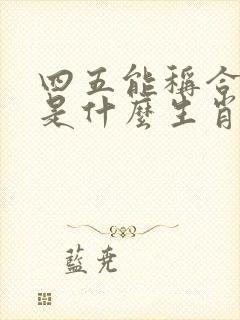 四五能稱合
是什麼生肖
藍堯